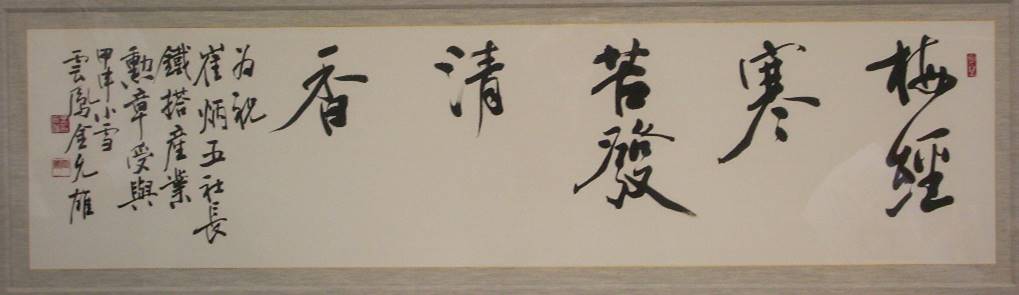 梅經
寒
苦發
清
香
为祝
崔炳五社長
鐵搭産業
勳章受與
甲申小雪
雲鳳金允雄